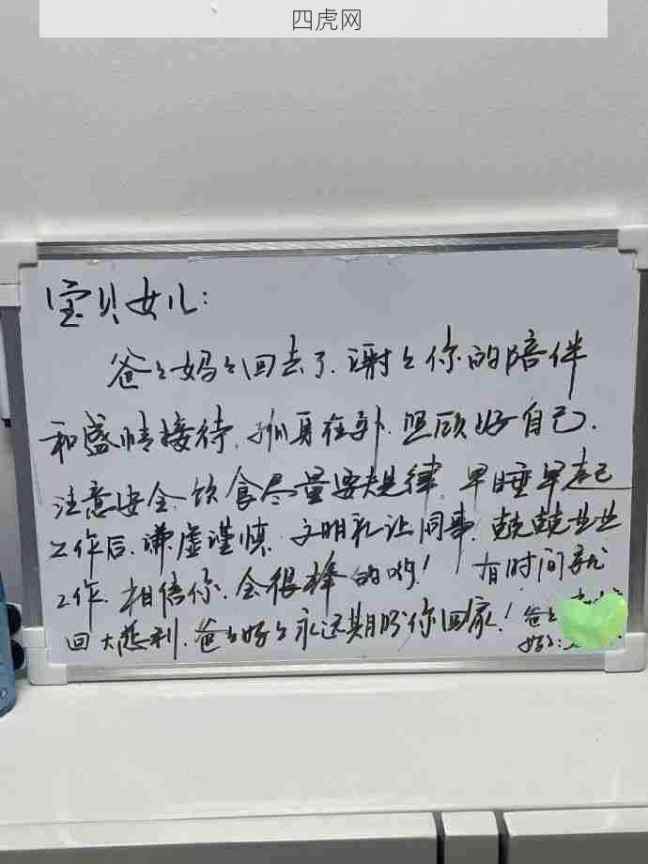 四虎网
宝贝女儿:
爸々妈々回去了.谢々你的陪伴
和盛情接待.孤身在外.照顾好自己.
注意安全.饮食尽量要规律.早睡早起
工作后.谦虚谨慎.文明礼让同事.兢兢业业
工作.相信你.会很棒的哟!有时间就
回大悲利.爸々妈々永远期盼你回家!爸々
妈々: